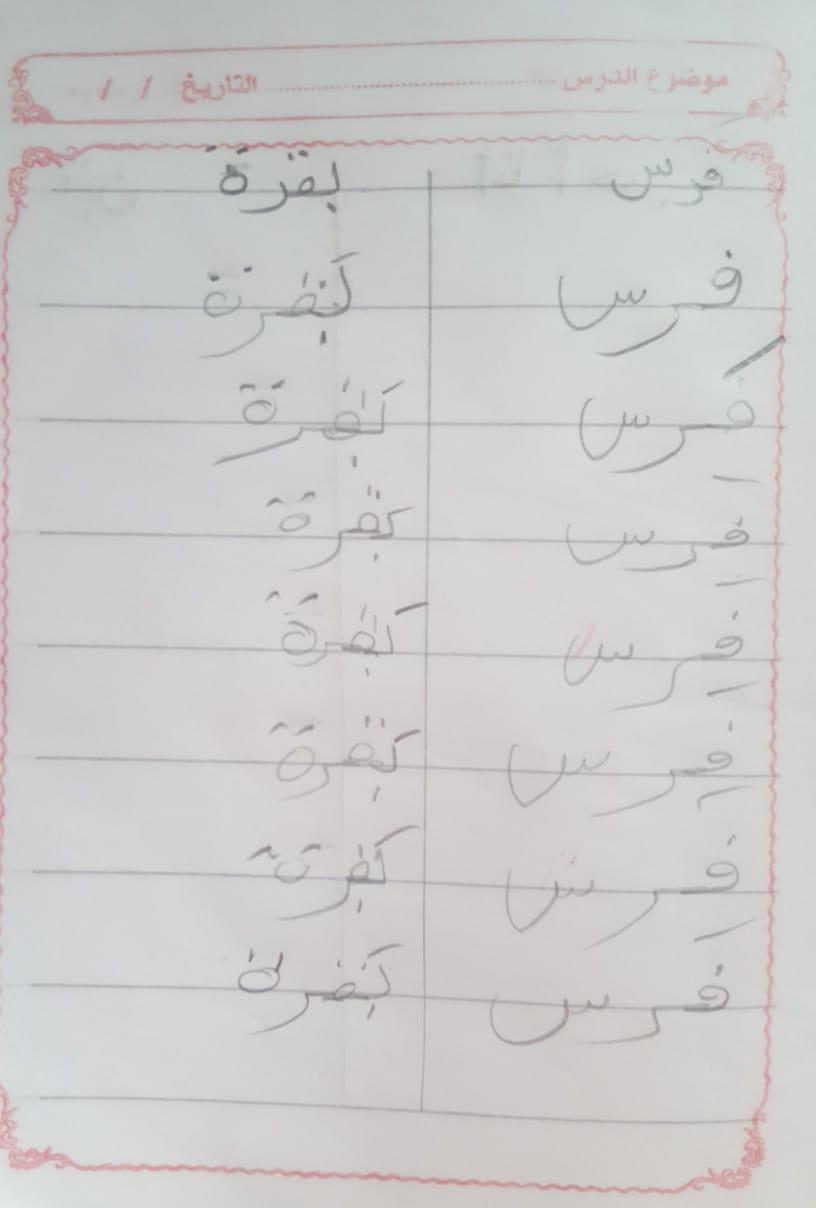 موضوع الدرس ........................ التاريخ / /
فرس بقرة
فرس بَقرة
فَرس بَقرة
فَرس بَقرة
فَرس بَقرة
فَرس بَقرة
فَرس بَقرة
فَرس بَقرة